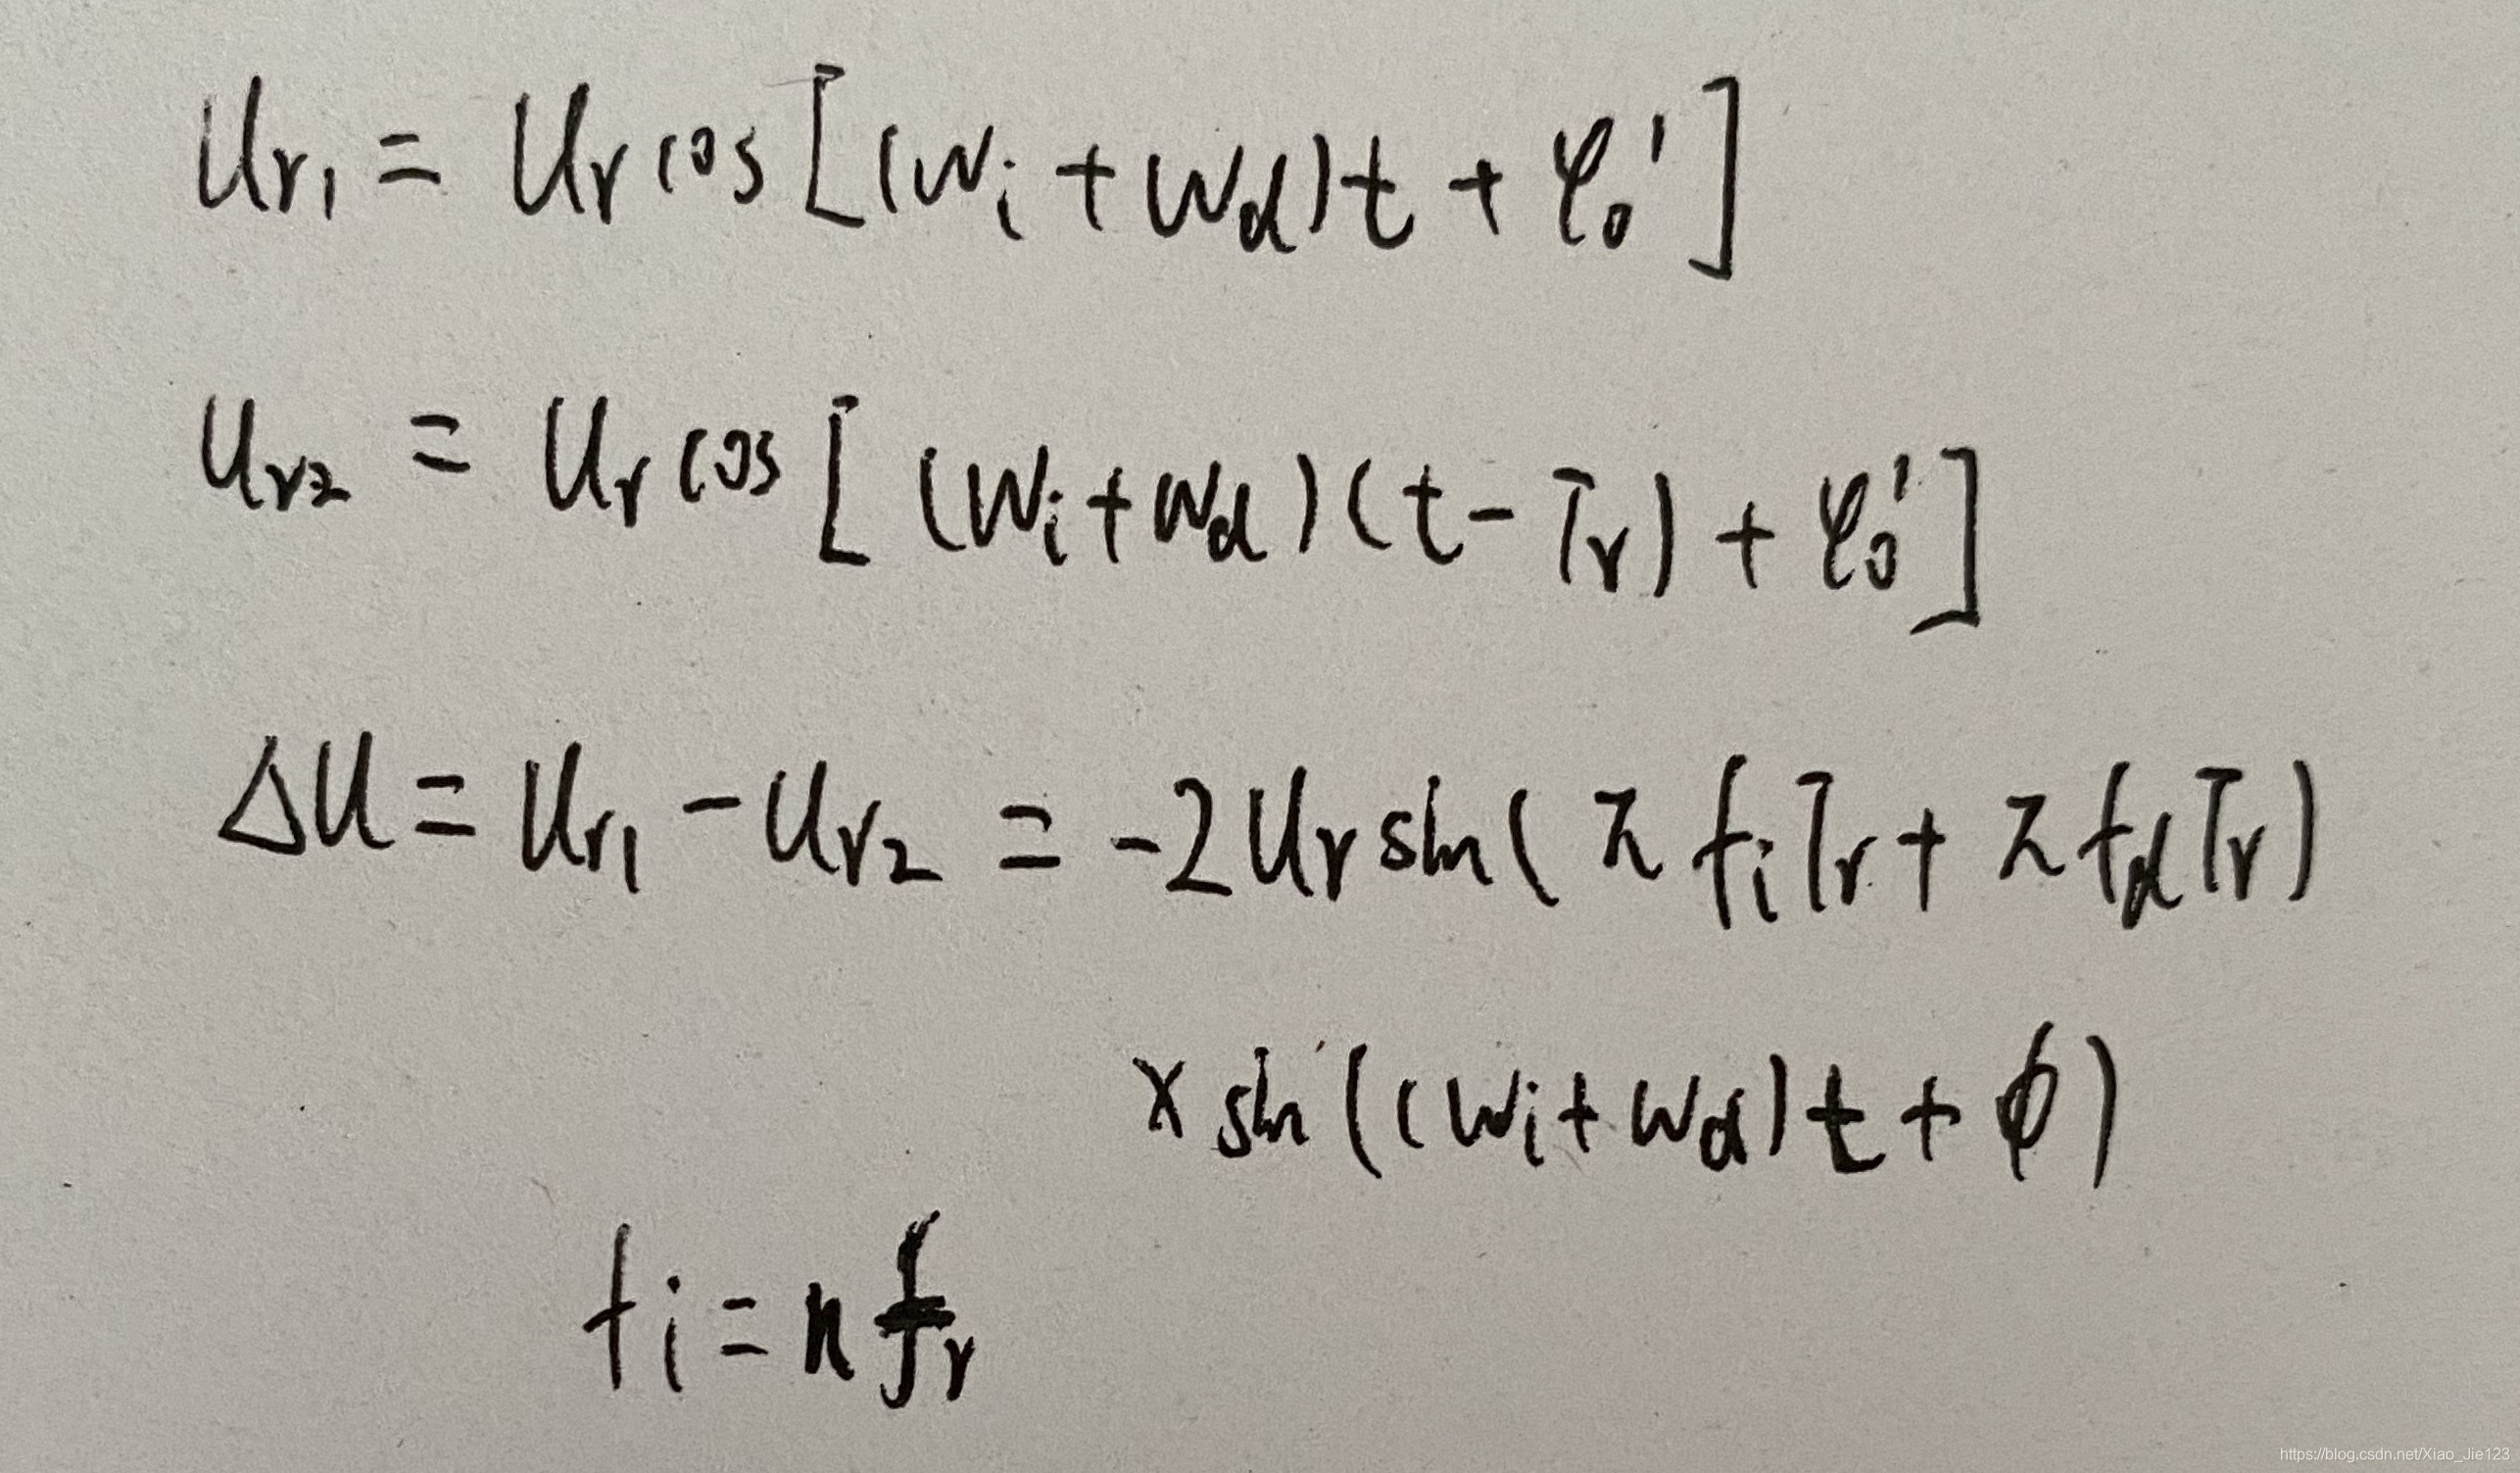 Ur₁ = Ur cos [(wi + wd)t + φ₀']
Ur₂ = Ur cos [(wi + wd)(t - Tr) + φ₀']
ΔU = Ur₁ - Ur₂ = -2Ur sin(π fiTr + π fdTr)
x sin((wi + wd)t + ϕ)
fi = n fr
https://blog.csdn.net/Xiao_Jie123